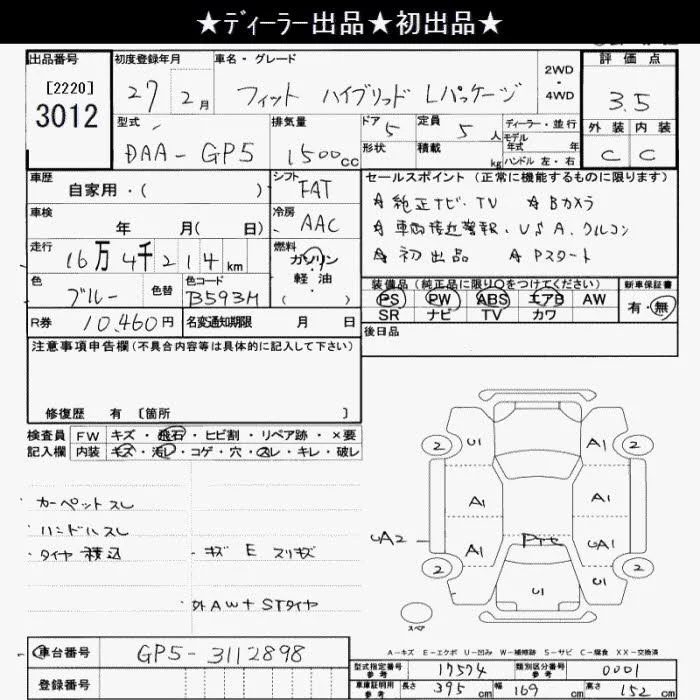 ★ディーラー出品★初出品★
出品番号 初度登録年月 車名・グレード 2WD・4WD 評価点
[2220]
3012
27 2月 フィット ハイブリッド Lパッケージ 3.5
型式 排気量 ドア 定員 ディーラー・並行 外装 内装
DAA-GP5 1500cc 5 5人 モデル年式 年 C C
形状 積載 kg ハンドル 左・右
車歴 自家用・( ) シフト FAT セールスポイント (正常に機能するものに限ります)
☆純正ナビ・TV ☆Bカメラ
車検 年 月( 日) 冷房 AAC
☆車両接近警報・VSA・クルコン
走行 16万4千214km 燃料 ガソリン・軽油・( )
☆初出品 ☆Pスタート
色 ブルー 色替 色コード B593M
装備品(純正品に限り○をつけてください) 新車保証書
PS PW ABS エアB AW 有・無
SR ナビ TV カワ
R券 10,460円 名変通知期限 月 日
後日品
注意事項申告欄(不具合内容等は具体的に記入して下さい)
修復歴 有 [箇所 ]
検査員記入欄 FW キズ・飛石・ヒビ割・リペア跡・×要
内装 キズ・汚レ・コゲ・穴・スレ・キレ・破レ
カーペットスレ
ハンドルスレ
タイヤ積込 -キズ E スリキズ
外AW+STタイヤ
2 U1 A1 2
A1 A1
UA2 A1 UA1
2 U1 2
スペア
A-キズ E-エクボ U-凹み W-補修跡 S-サビ C-腐食 XX-交換済
車台番号 GP5-3112898
登録番号
型式指定番号 参考 17574 類別区分番号 参考 0001
車庫証明用 参考 長さ 395cm 幅 169cm 高さ 152cm